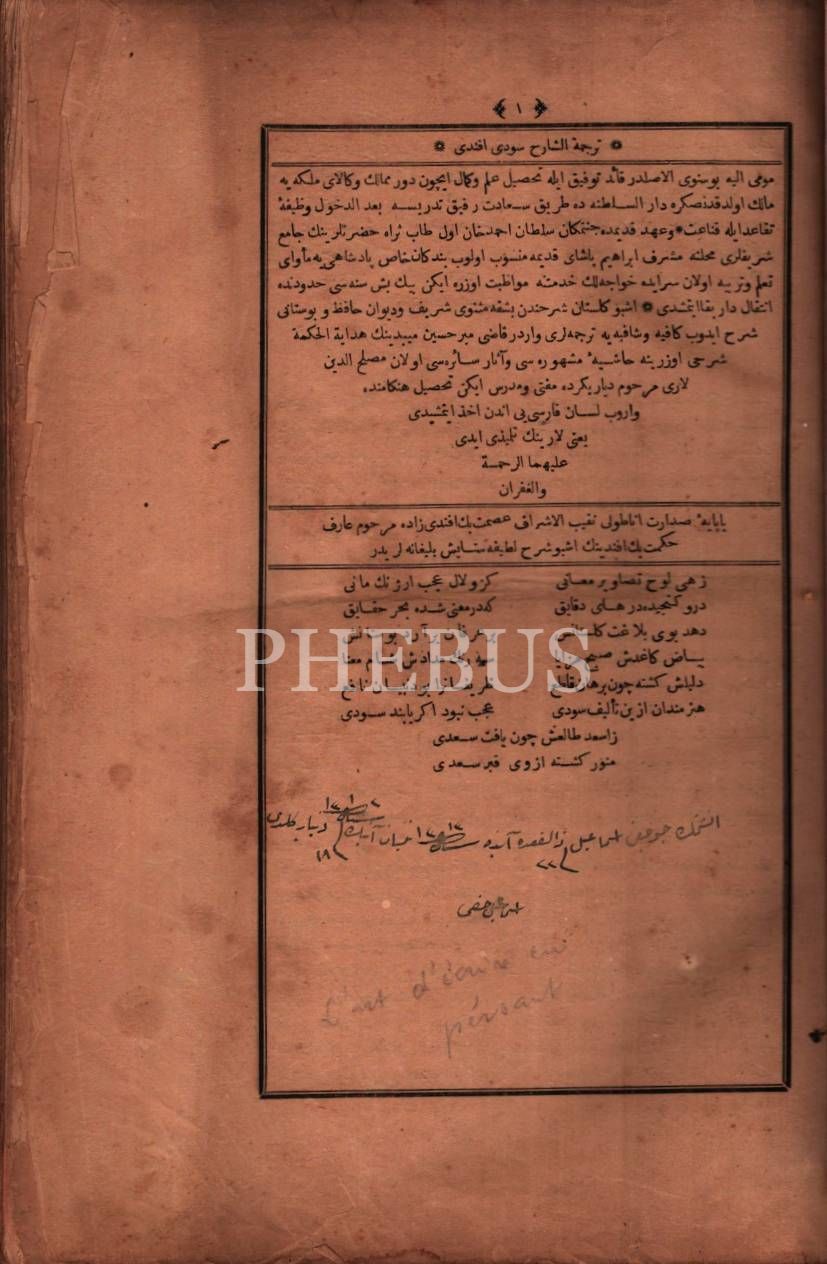 ١
ترجمة الشارح سودی افندی
مومی الیه بوسنوی الاصلدر قائد توفیق ایله تحصیل علم وکمال ایچون دور ممالك وکالای ملکه یه
مالك اولدقدنصکره دار السلطنه ده طریق سعادت رفیق تدریسه بعد الدخول وظیفهٔ
تقاعد ایله قناعت * وعهد قدیمده جنتمکان سلطان احمدخان اول طاب ثراه حضرتلرینك جامع
شریفلری محلنه مشرف ابراهیم پاشای قدیمه منسوب اولوب بندکان خاص پادشاهی یه مأوای
تعلم وتربیه اولان سرایده خواجه لك خدمتنه مواظبت اوزره ایکن بیك بش سنه سی حدودنده
انتقال دار بقا ایتمشدی * اشبو کلستان شرحندن بشقه مثنوی شریف ودیوان حافظ و بوستانی
شرح ایدوب کافیه وشافیه یه ترجمه لری واردر قاضی میرحسین میبدینك هدایة الحکمة
شرحی اوزرینه حاشیهٔ مشهوره سی وآثار سائره سی اولان مصلح الدین
لاری مرحوم دیاربکرده مفتی ومدرس ایکن تحصیل هنکامنده
واروب لسان فارسی یی اندن اخذ ایتمشیدی
یعنی لارینك تلمیذی ایدی
علیهما الرحمة
والغفران
باپایهٔ صدارت اناطولی نقیب الاشراف عصمت بك افندی زاده مرحوم عارف
حکمت بك افندینك اشبو شرح لطیفه ستایش بلیغانه لریدر
زهی لوح تصاویر معانی کزو لال عجب ارژنك مانی
درو کنجیده درهای دقایق که در معنی شده بحر حقایق
دهد بوی بلاغت کلستانش
بیاض کاغدش صبح
دلیلش کشته چون برهان قاطع
هنرمندان ازین تألیف سودی عجب نبود اکر یابند سودی
زاسعد طالعش چون یافت سعدی
منور کشته از وی قبر سعدی
اسماعیل
اسماعیل حقی
L'art d'écrire en
persant
PHEBUS